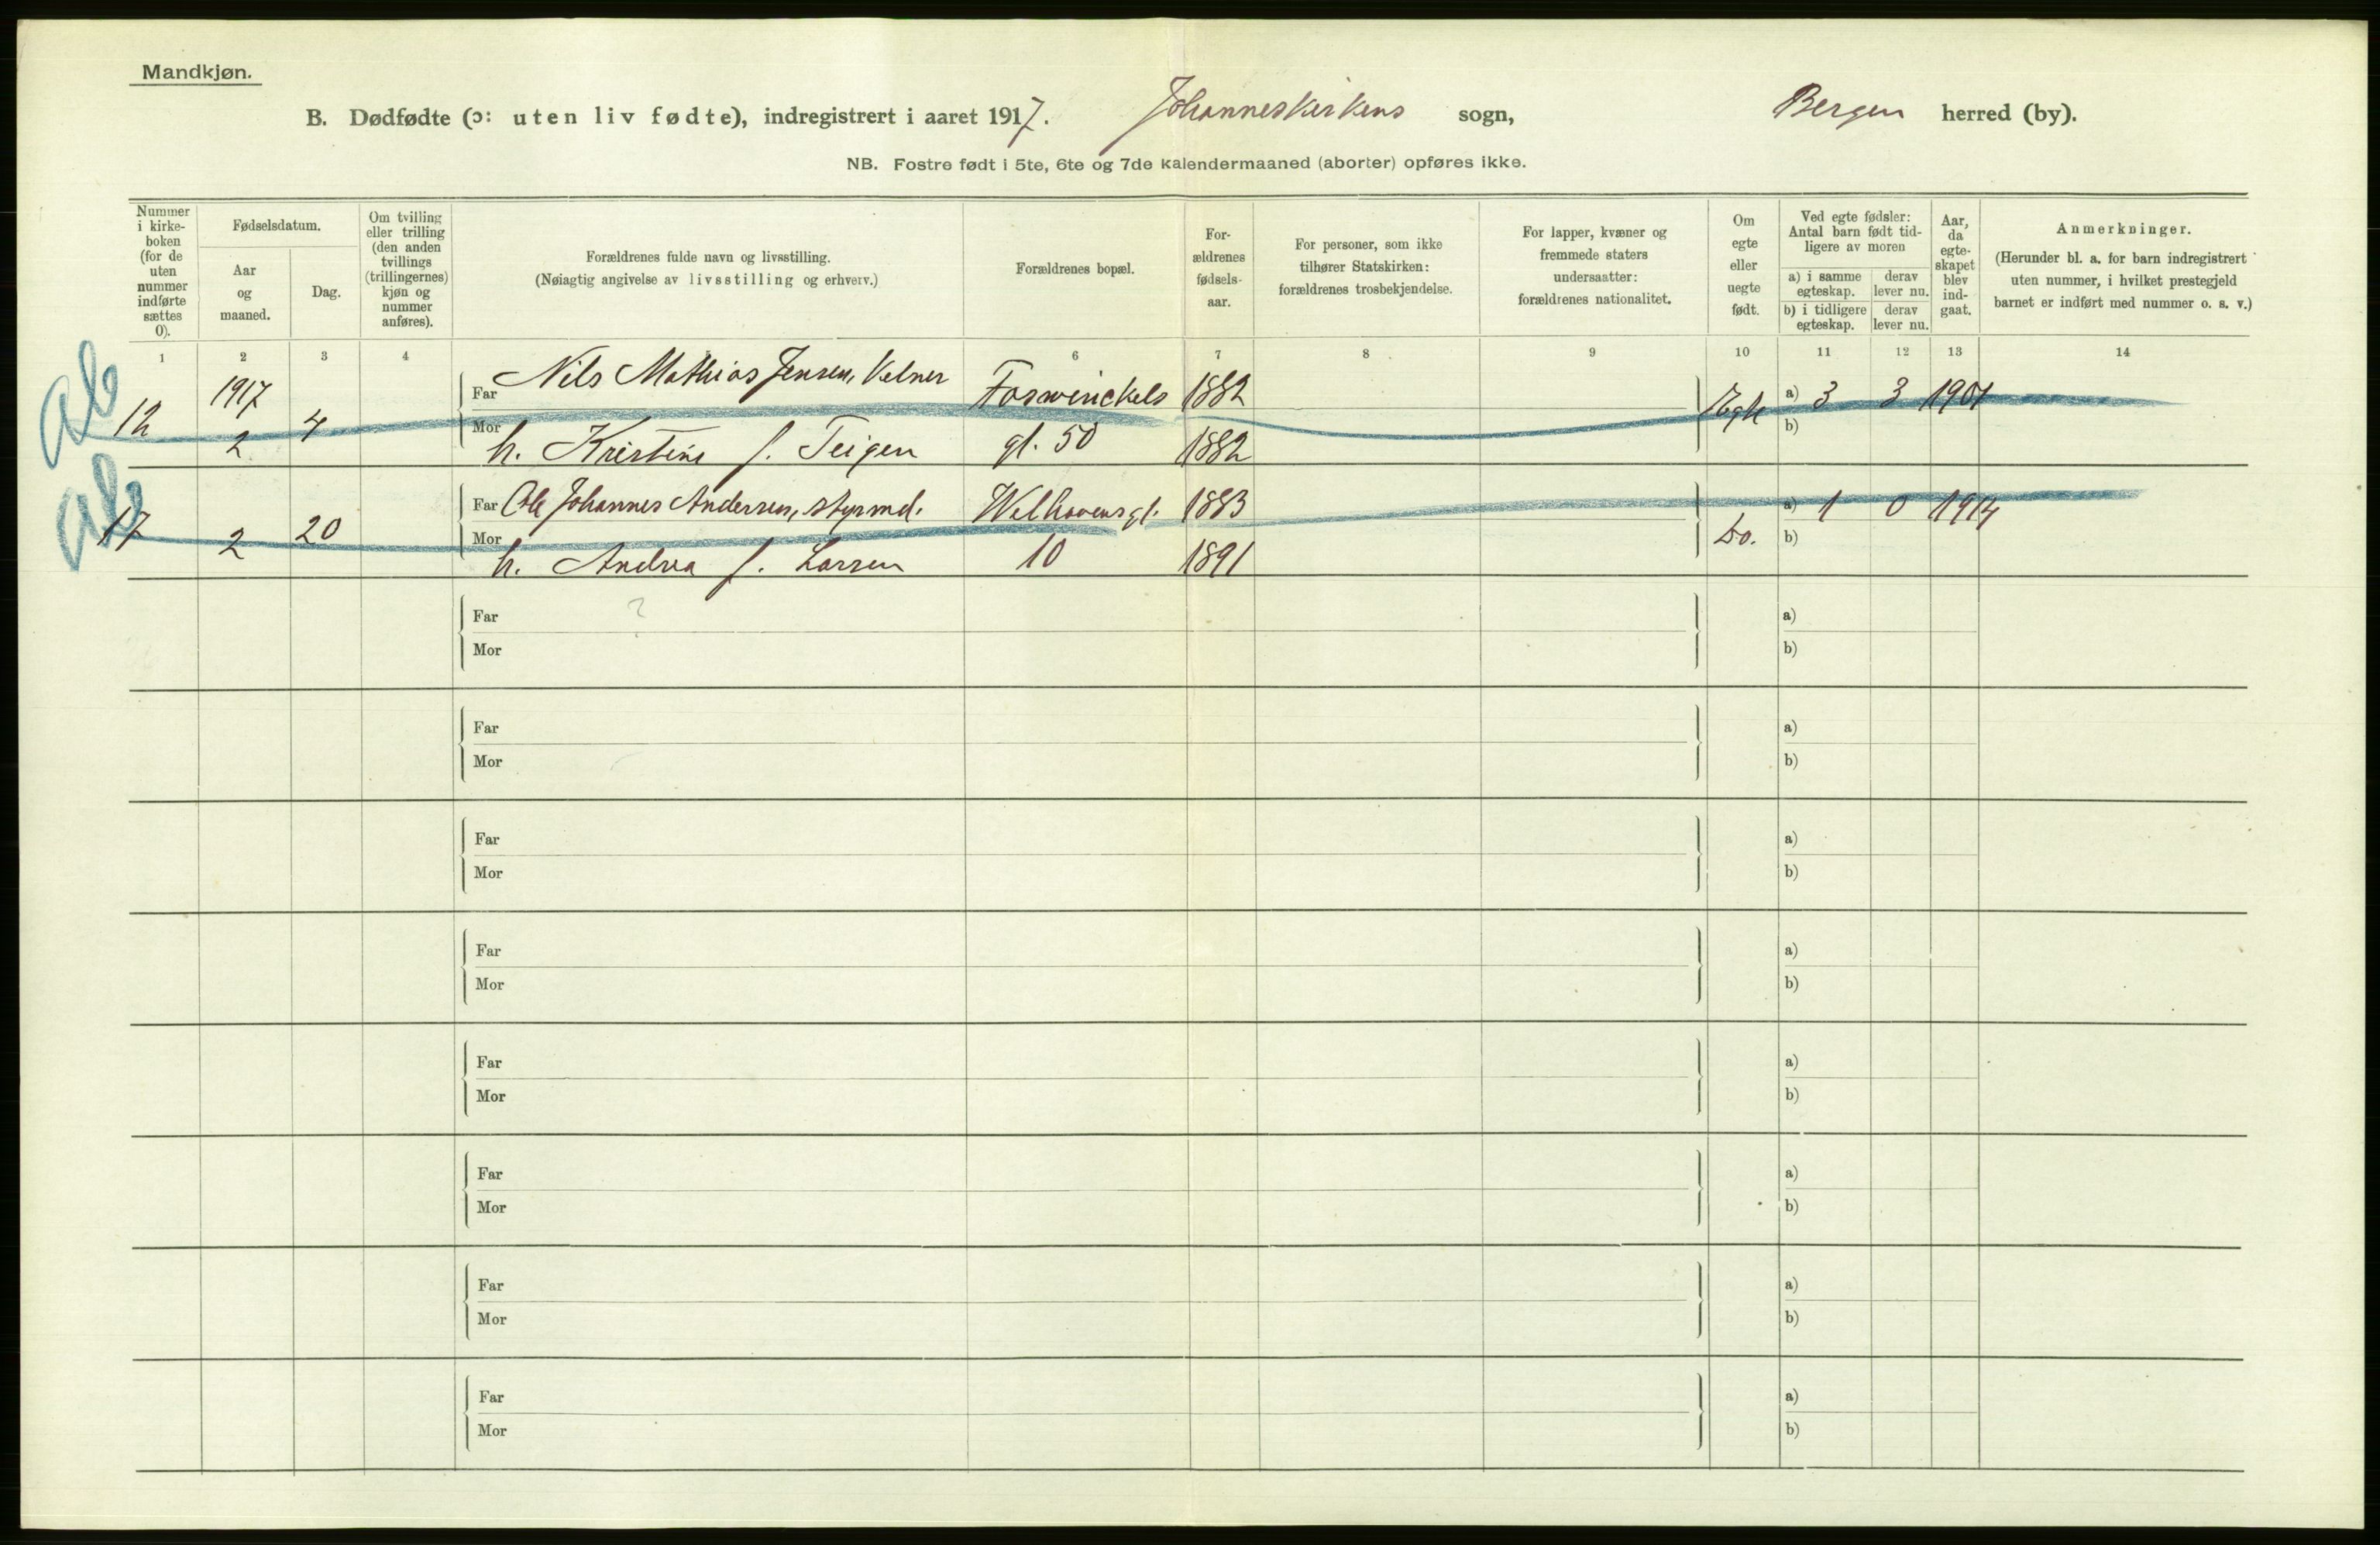 Mandkjøn.
B. Dødfødte (ɔ: uten liv fødte), indregistrert i aaret 1917. Johanneskirkens sogn, Bergen herred (by).
NB. Fostre født i 5te, 6te og 7de kalendermaaned (aborter) opføres ikke.
Nummer i kirke-boken (for de uten nummer indførte sættes 0).
Fødselsdatum.
Aar og maaned.
Dag.
Om tvilling eller trilling (den anden tvillings (trillingernes) kjøn og nummer anføres).
Forældrenes fulde navn og livsstilling.
(Nøiagtig angivelse av livsstilling og erhverv.)
Forældrenes bopæl.
For-ældrenes fødsels-aar.
For personer, som ikke tilhører Statskirken: forældrenes trosbekjendelse.
For lapper, kvæner og fremmede staters undersaatter: forældrenes nationalitet.
Om egte eller uegte født.
Ved egte fødsler: Antal barn født tid-ligere av moren
a) i samme egteskap.
derav lever nu.
b) i tidligere egteskap.
derav lever nu.
Aar, da egte-skapet blev ind-gaat.
Anmerkninger.
(Herunder bl. a. for barn indregistrert uten nummer, i hvilket prestegjeld barnet er indført med nummer o. s. v.)
1 2 3 4 6 7 8 9 10 11 12 13 14
ab
12 1917 2 4 Far Nils Mathias Jensen, Kelner Foswinckels 1882 Egte a) 3 3 1901
Mor h. Kristine f. Teigen gt. 50 1882 b)
ab
17 2 20 Far Ole Johannes Andersen, styrmd. Welhavensgt. 1883 Do. a) 1 0 1914
Mor h. Andrea f. Larsen 10 1891 b)
Far ? a)
Mor b)
Far a)
Mor b)
Far a)
Mor b)
Far a)
Mor b)
Far a)
Mor b)
Far a)
Mor b)
Far a)
Mor b)
Far a)
Mor b)